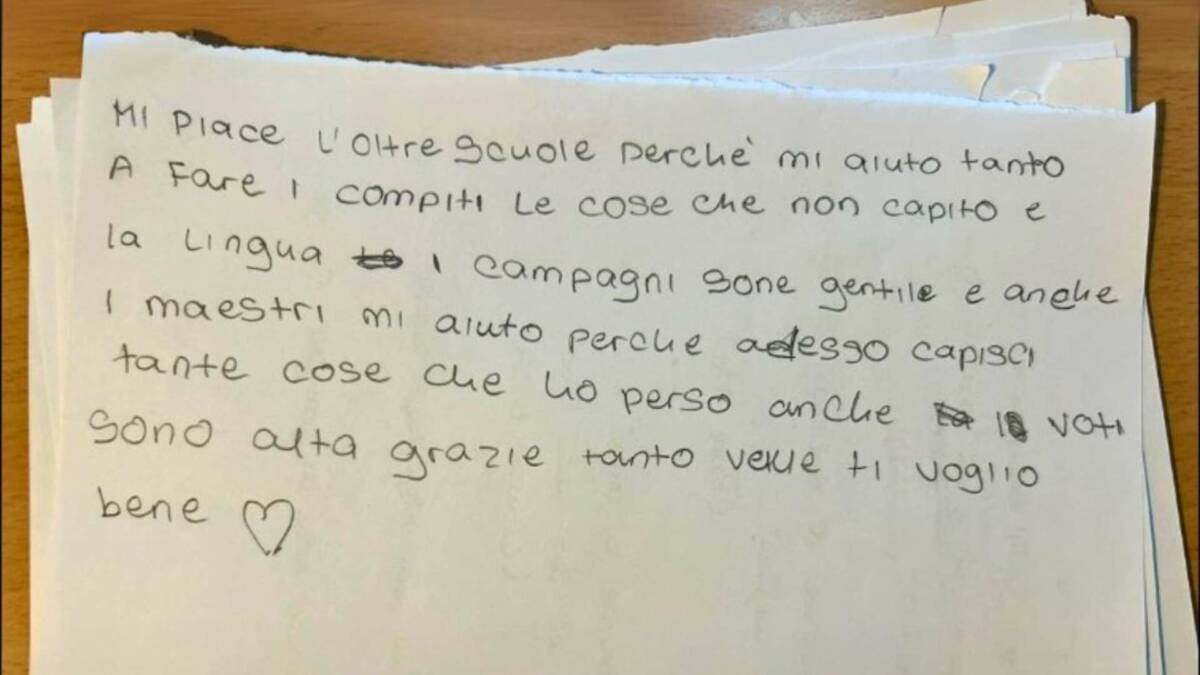 MI PIACE L'OLTRE SCUOLE PERCHÈ mi aiuto tanto
A FARE I compiti Le cose che non capito e
la Lingua i campagni sone gentile e anche
I maestri mi aiuto perche adesso capisci
tante cose che ho perso anche voti
sono alta grazie tanto ti voglio
bene ♡